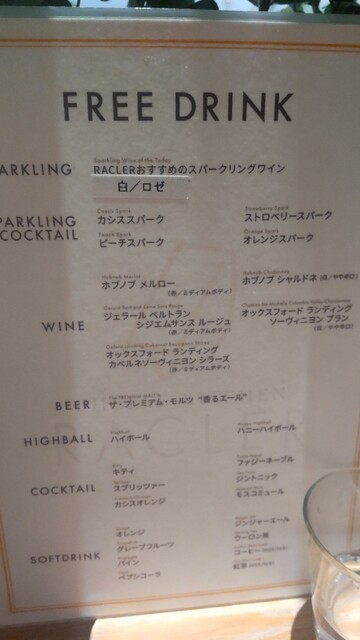 FREE DRINK
ARKLING
Sparkling Wine of the Today
RACLERおすすめのスパークリングワイン
白／ロゼ
PARKLING
COCKTAIL
Cassis Spark
カシススパーク
Strawberry Spark
ストロベリースパーク
Peach Spark
ピーチスパーク
Orange Spark
オレンジスパーク
WINE
Hobnob Merlot
ホブノブ メルロー
(赤／ミディアムボディ)
Hobnob Chardonnay
ホブノブ シャルドネ (白／やや辛口)
ジェラール ベルトラン
シジエムサンス ルージュ
(赤／ミディアムボディ)
オックスフォード ランディング
ソーヴィニヨン ブラン
(白／やや辛口)
オックスフォード ランディング
カベルネソーヴィニヨン シラーズ
(赤／ミディアムボディ)
BEER
The PREMIUM MALT'S
ザ・プレミアム・モルツ "香るエール"
HIGHBALL
Highball
ハイボール
Honey Highball
ハニーハイボール
COCKTAIL
キティ
ファジーネーブル
スプリッツァー
ジントニック
カシスオレンジ
モスコミュール
SOFTDRINK
オレンジ
ジンジャーエール
グレープフルーツ
ウーロン茶
パイン
コーヒー
ペプシコーラ
紅茶
RACLER